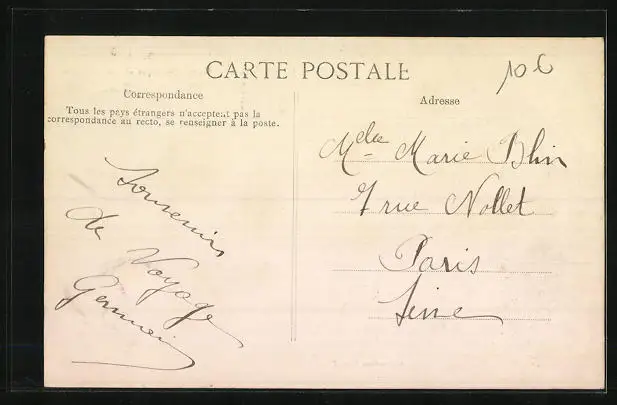 CARTE POSTALE
10 C
Correspondance
Tous les pays étrangers n'acceptent pas la
correspondance au recto, se renseigner à la poste.
Adresse
Souvenirs
de Voyage
Germain
Melle Marie Blin
7 rue Nollet
Paris
Seine